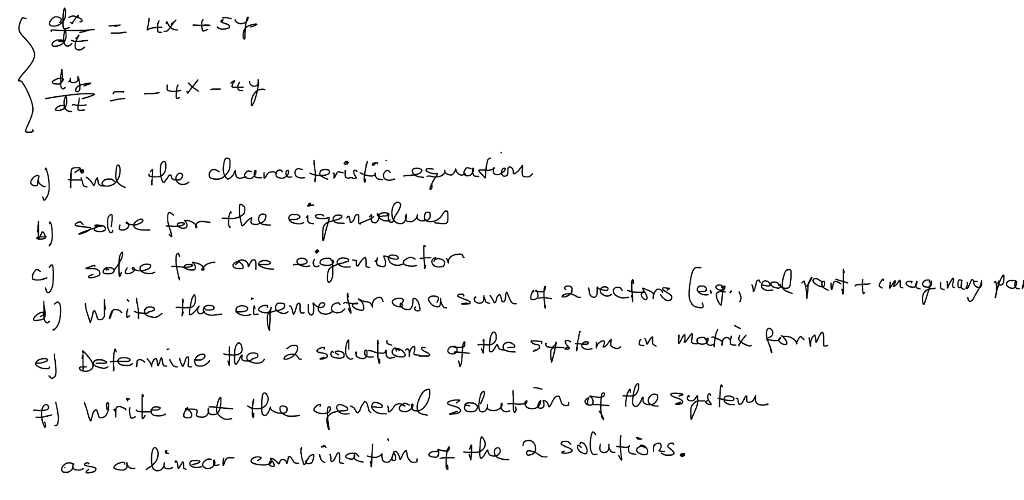 dx/dt = 4x + 5y
dy/dt = -4x - 4y
a) Find the characteristic equation
b) solve for the eigenvalues
c) solve for one eigenvector
d) Write the eigenvector as a sum of 2 vectors (e.g., real part + imaginary par
e) Determine the 2 solutions of the system in matrix form
f) Write out the general solution of the system
as a linear combination of the 2 solutions.